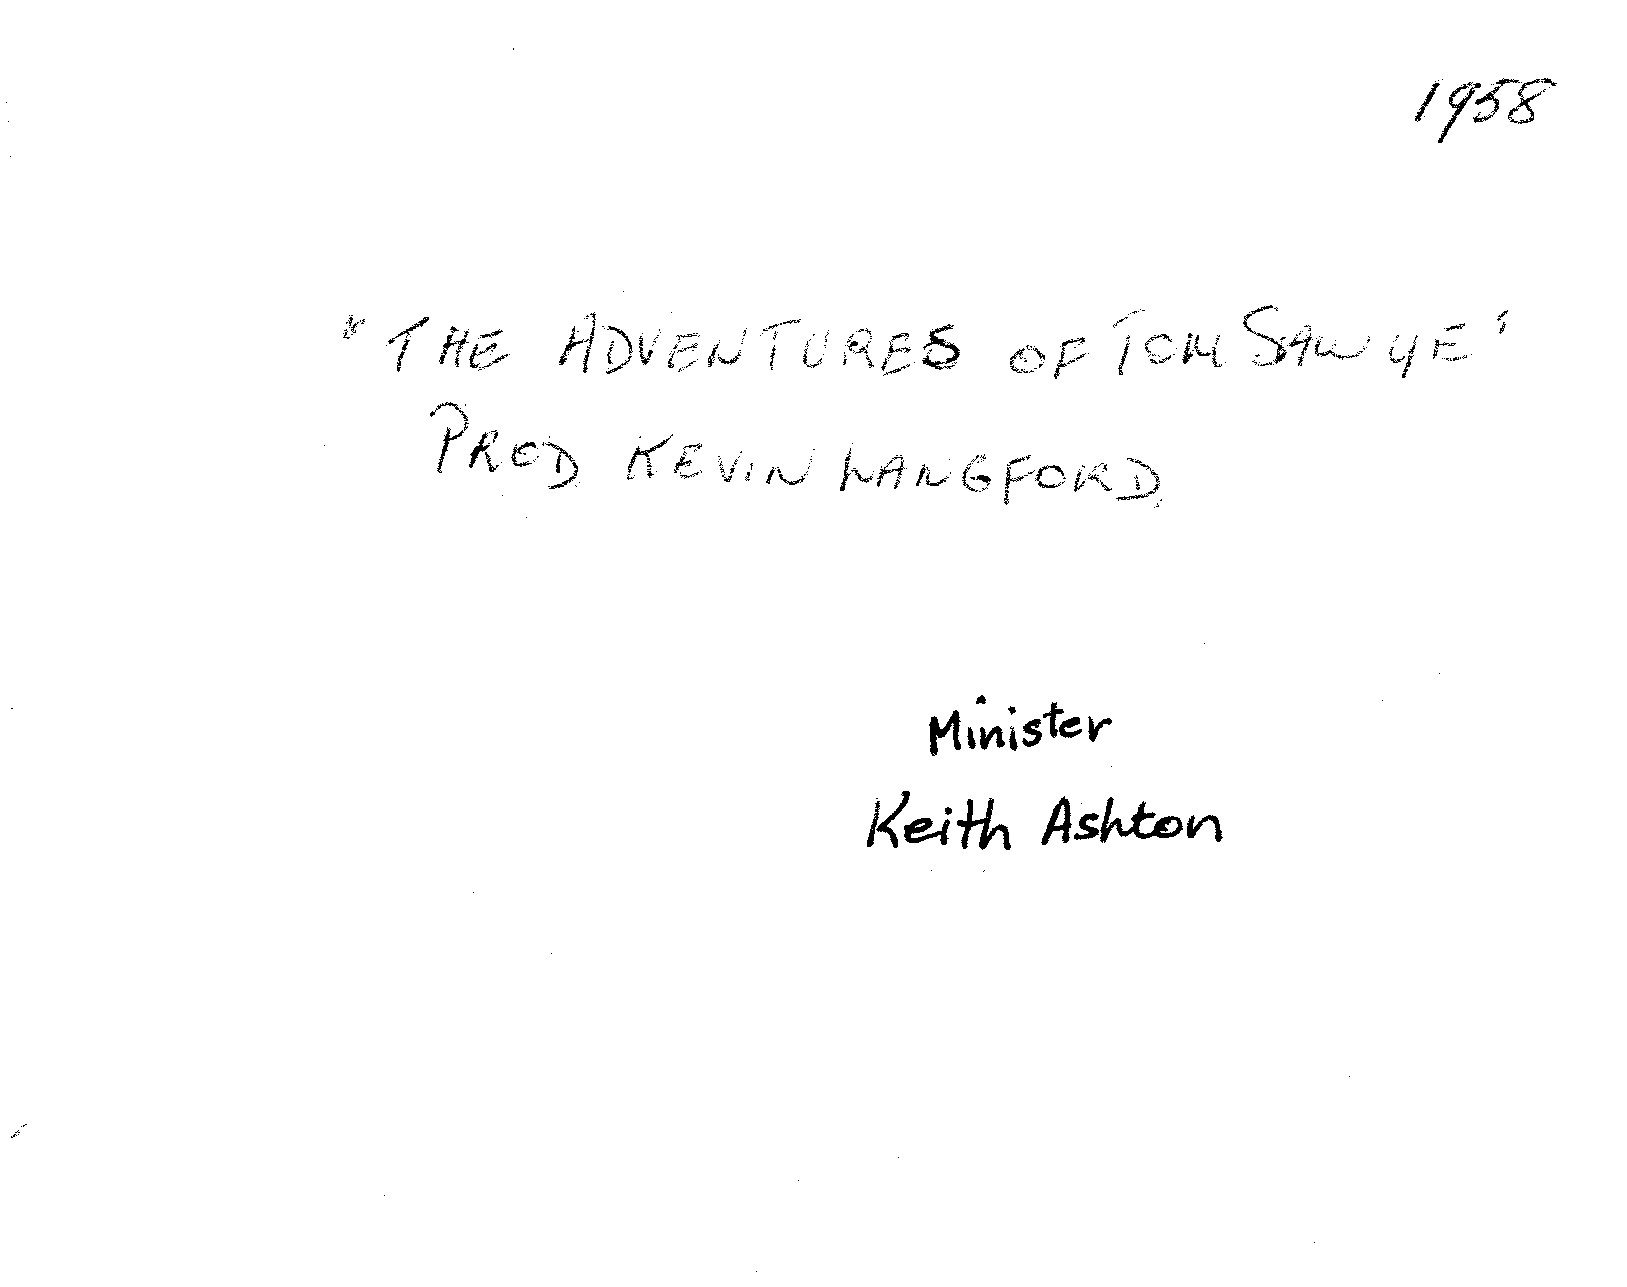 1958
"THE ADVENTURES OF TOM SAWYE'
PROD KEVIN LANGFORD
Minister
Keith Ashton